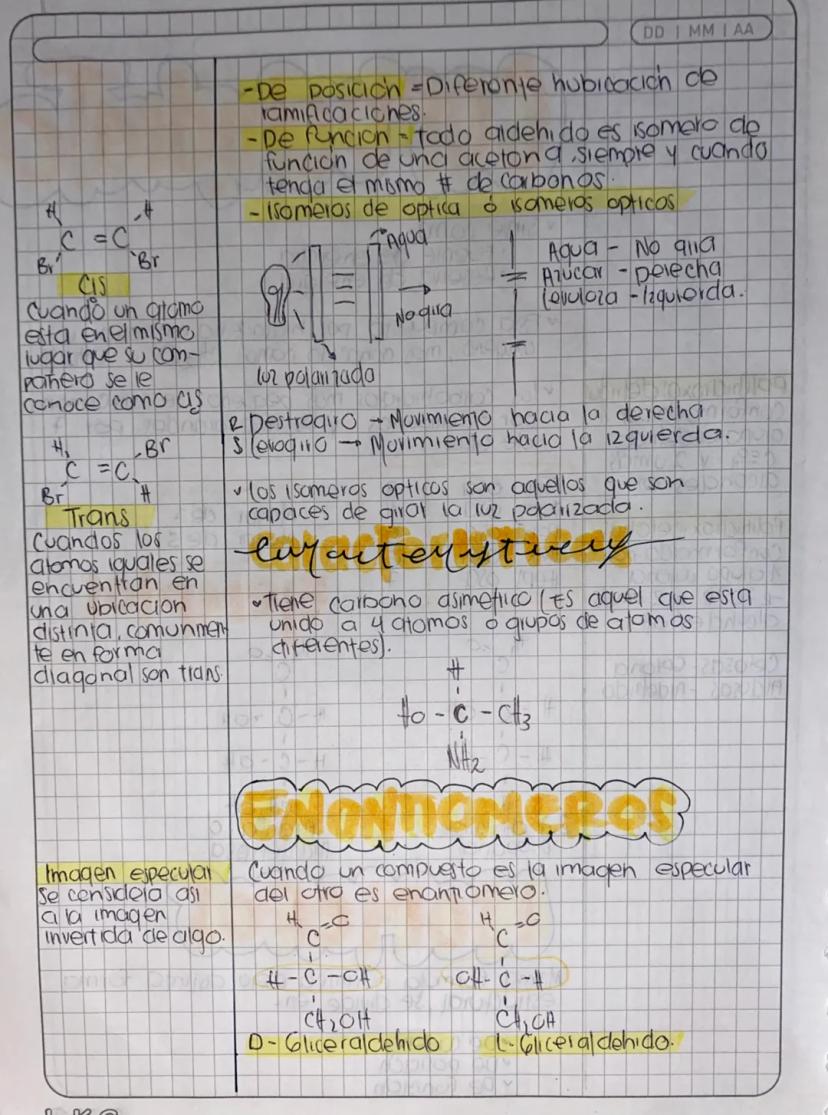 DD | MM | AA
-De posición = Diferente hubicación de
ramificaciones.
-De función = todo aldehido es isomero de
función de una acetona, siempre y cuando
tenga el mismo # de carbonos.
-Isomeros de optica ó isomeros opticos
H H
C = C
Br Br
Cis
Cuando un atomo
esta en el mismo
lugar que su com-
pañero se le
conoce como cis
H Br
C = C
Br H
Trans
Cuandos los
atomos iguales se
encuentran en
una ubicacion
distinta, comunmen
te en forma
diagonal son trans.
Agua
No gira
luz polarizada
Agua - No gira
Azucar - Derecha
Levuloza - Izquierda.
R Destrogiro → Movimiento hacia la derecha
S levogiro → Movimiento hacia la izquierda.
los isomeros opticos son aquellos que son
capaces de girar la luz polarizada.
Características
•Tiene carbono asimetico (Es aquel que esta
unido a 4 atomos o grupos de atomos
diferentes).
H
Ho - C - CH3
NH2
ENANTIOMEROS
Imagen especular
se considera asi
a la imagen
invertida de algo.
Cuando un compuesto es la imagen especular
del otro es enantiomero.
H =O
C
H - C - OH
CH2OH
D- Gliceraldehido
H =O
C
OH - C - H
CH2OH
L- Gliceraldehido.